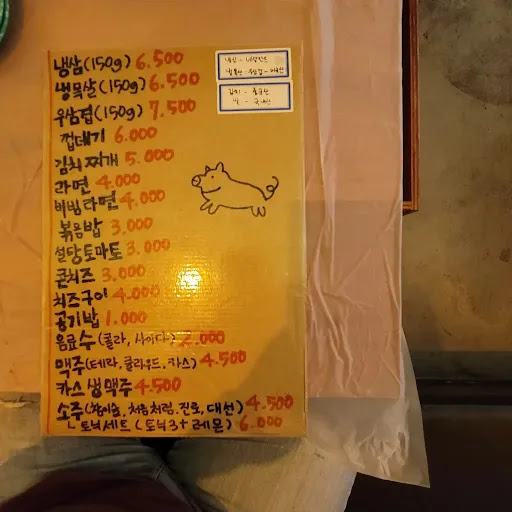 냉삼(150g) 6.500
냉목살(150g) 6.500
우삼겹(150g) 7.500
껍데기 6.000
김치찌개 5.000
라면 4.000
비빔라면 4.000
볶음밥 3.000
설탕토마토 3.000
콘치즈 3.000
치즈구이 4.000
공기밥 1.000
음료수 (콜라, 사이다) 2.000
맥주 (테라, 클라우드, 카스) 4.500
카스 생맥주 4.500
소주 (참이슬, 처음처럼, 진로, 대선) 4.500
ㄴ토닉세트 (토닉3+레몬) 6.000
김치 - 중국산
쌀 - 국내산